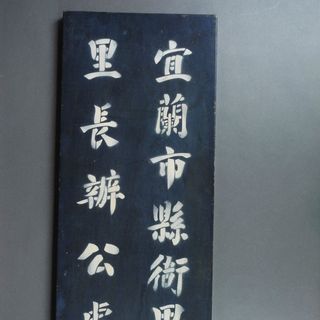 宜蘭市縣衙里
里長辦公處